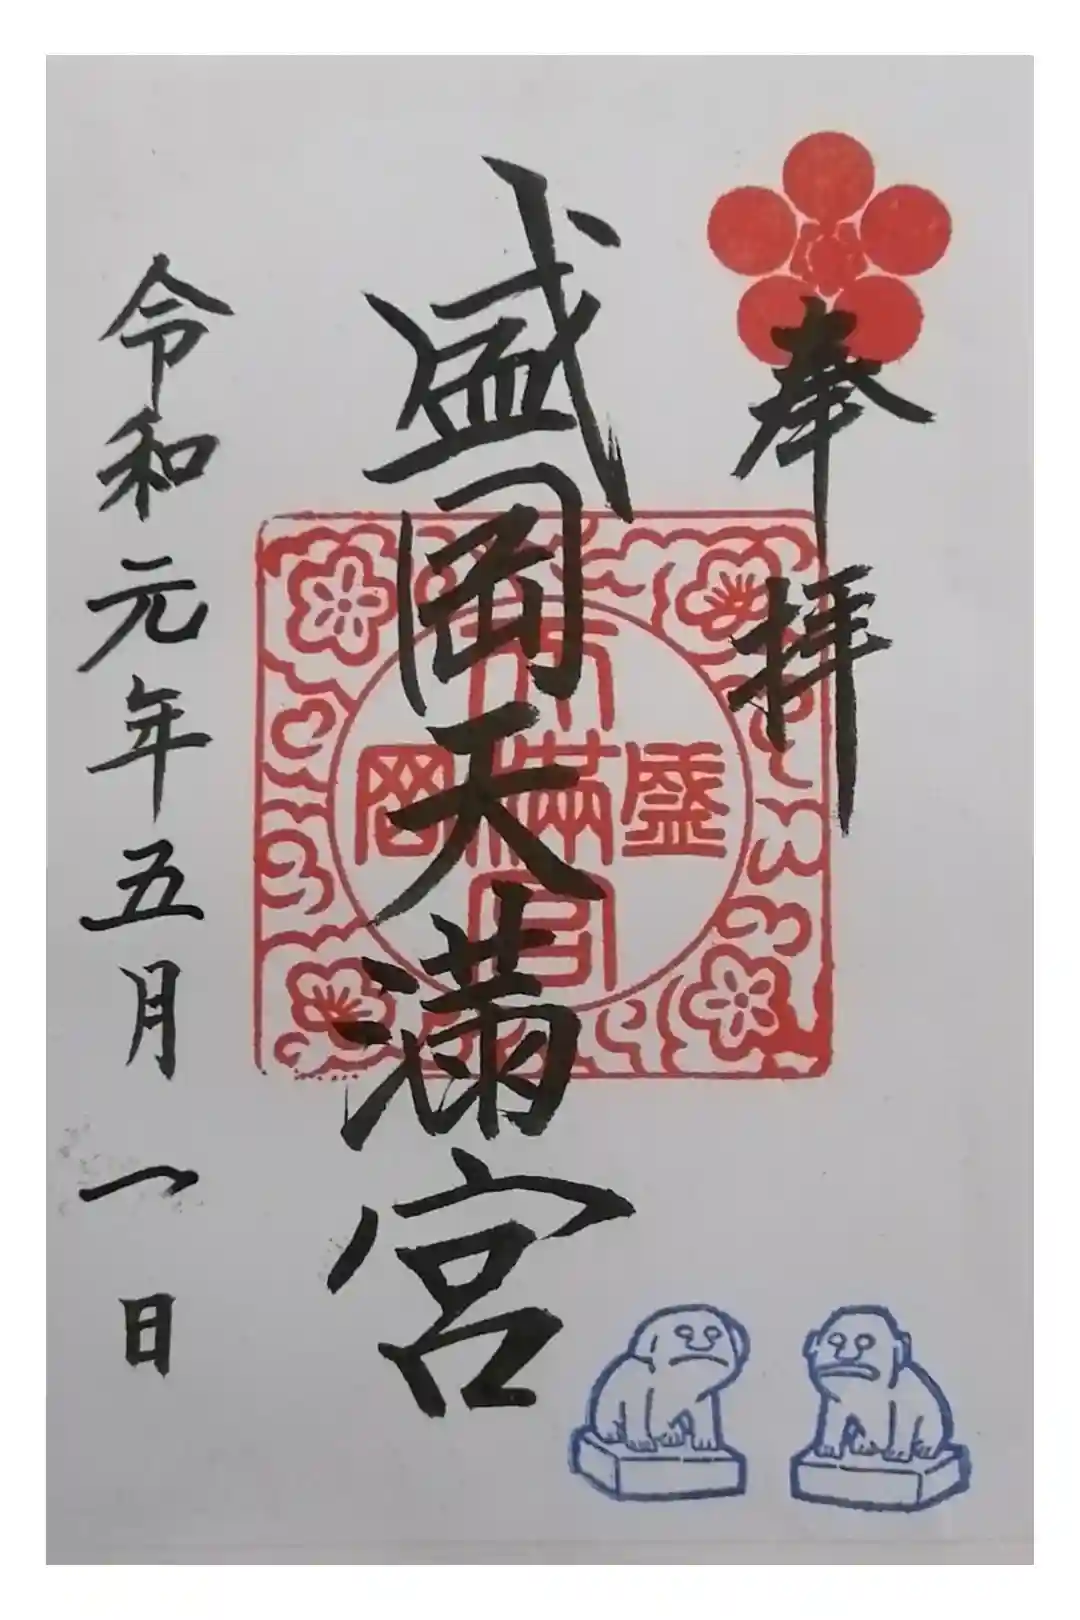 奉拝
盛岡天満宮
天満宮
盛岡
令和元年五月一日